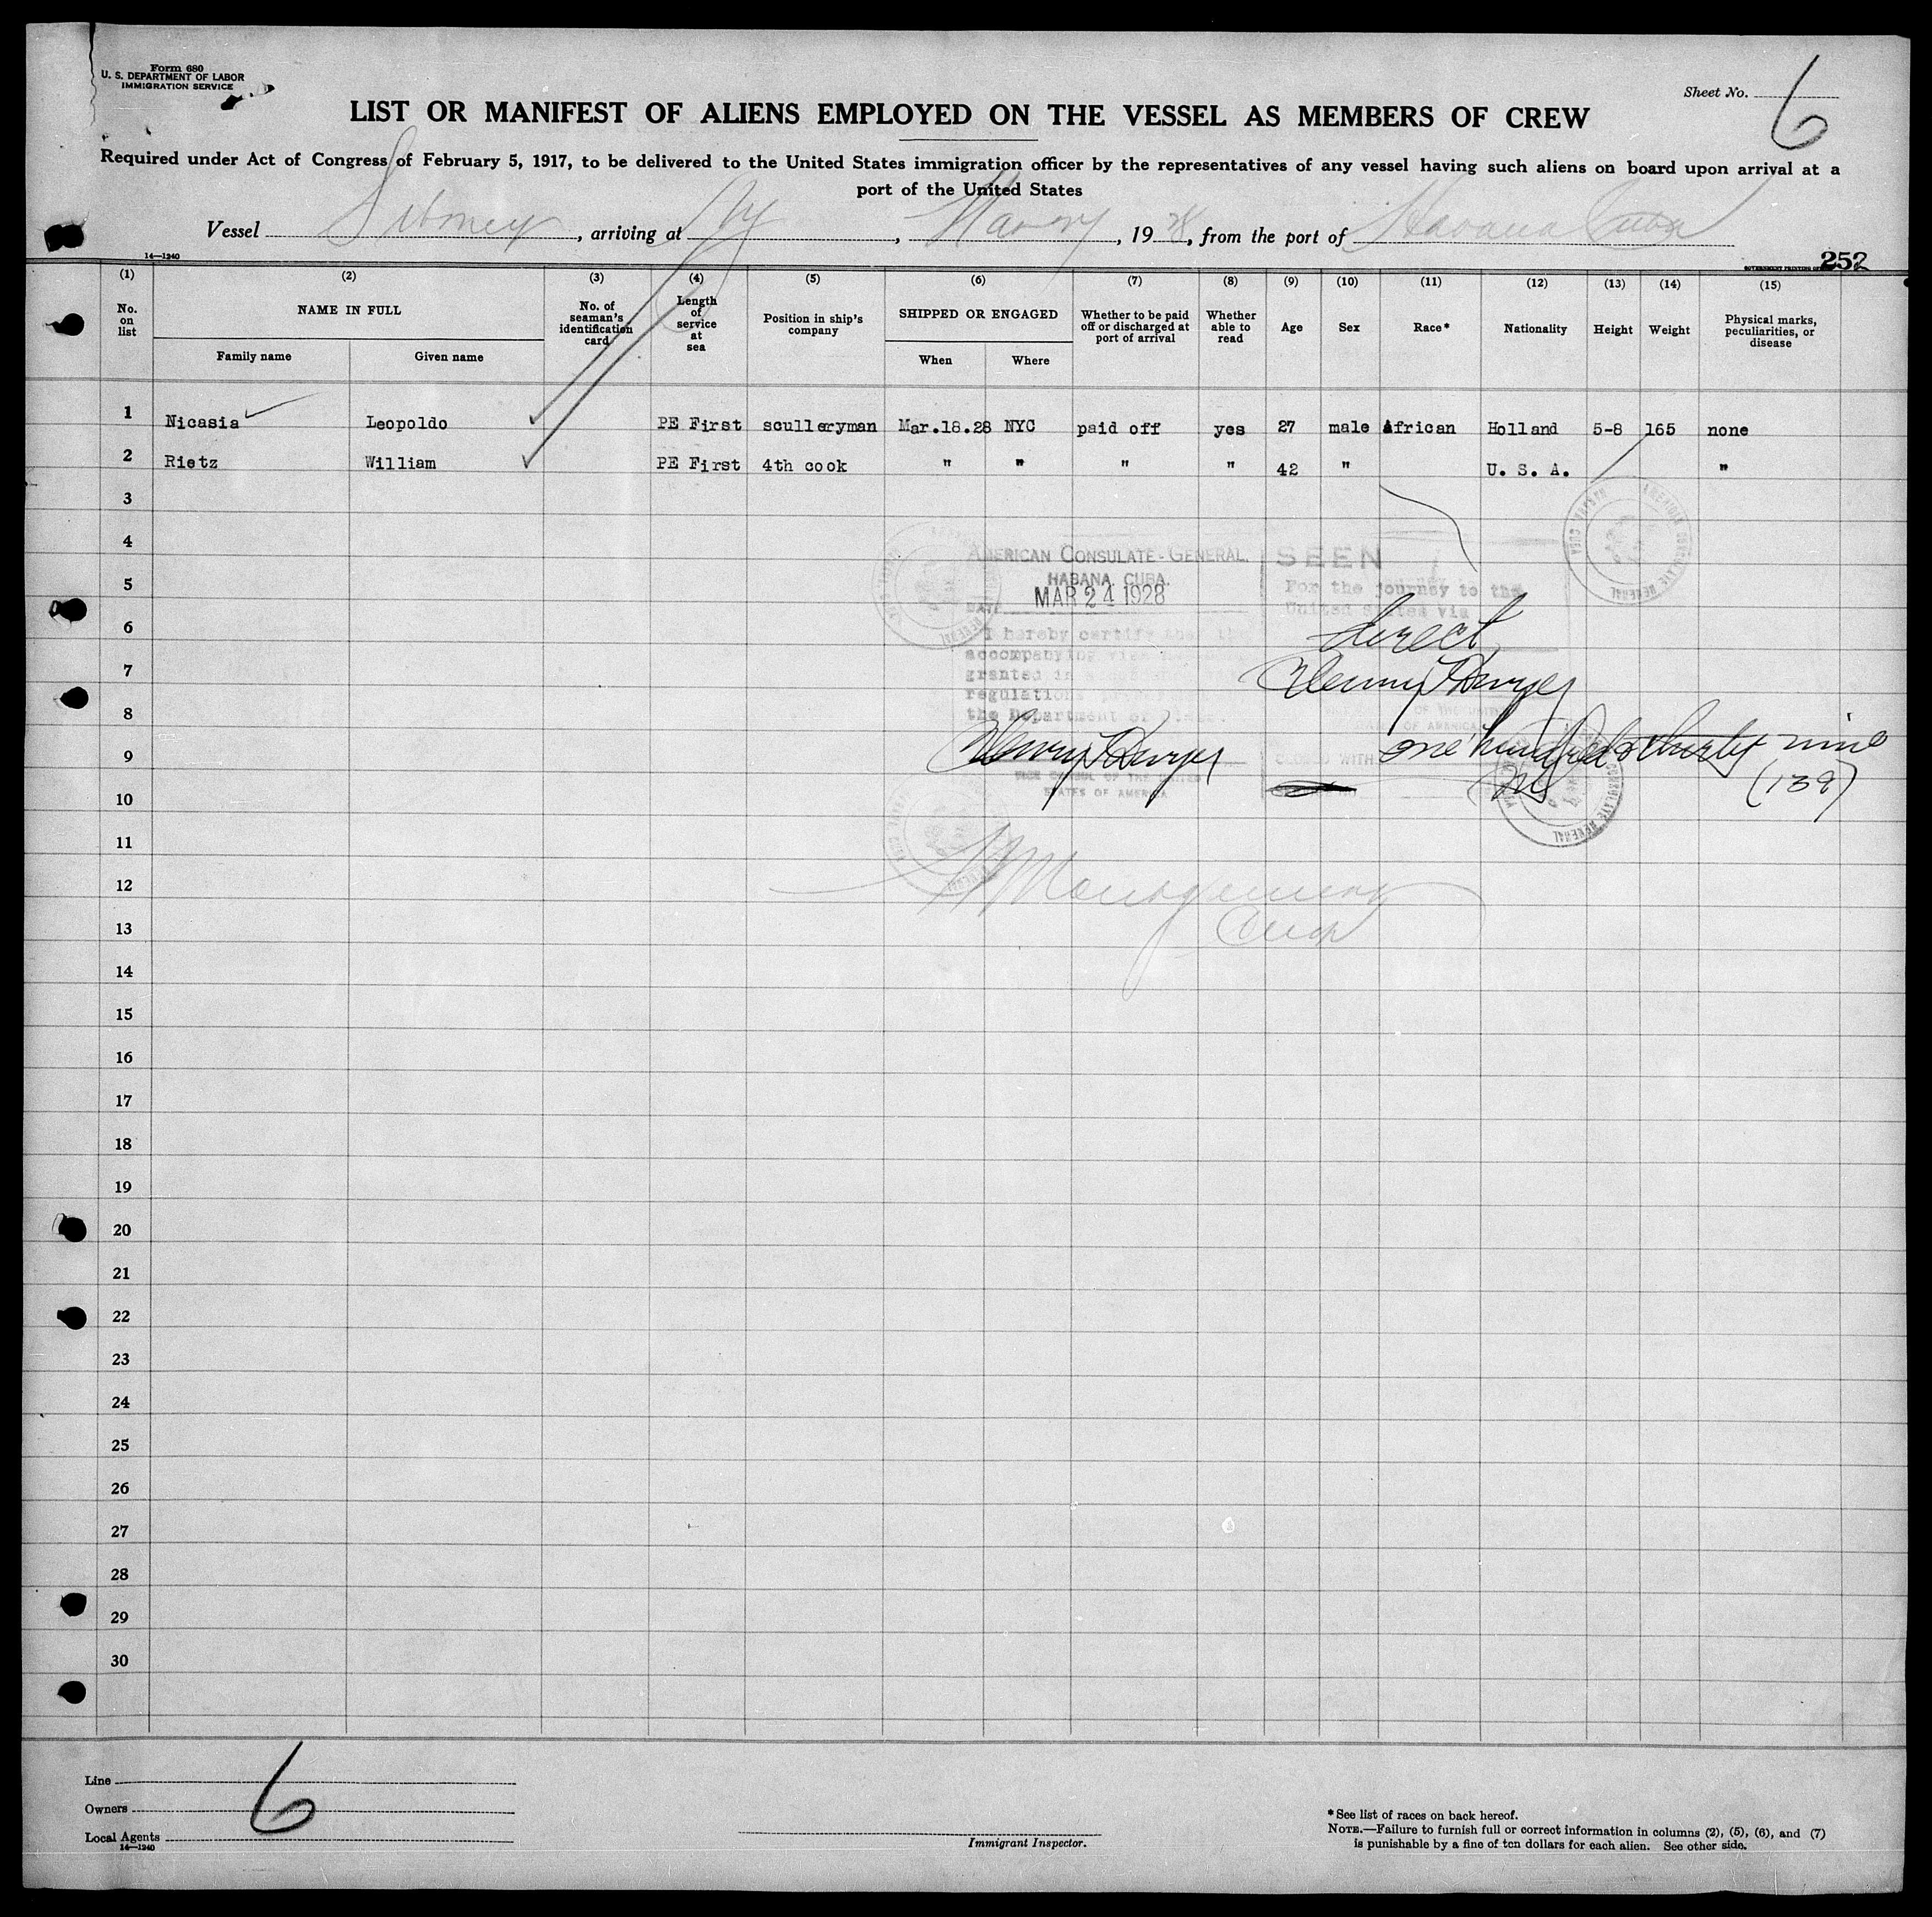 Form 680
U. S. DEPARTMENT OF LABOR
IMMIGRATION SERVICE
Sheet No. 6
LIST OR MANIFEST OF ALIENS EMPLOYED ON THE VESSEL AS MEMBERS OF CREW
Required under Act of Congress of February 5, 1917, to be delivered to the United States immigration officer by the representatives of any vessel having such aliens on board upon arrival at a
port of the United States
Vessel Siboney, arriving at NY, Mar 27, 1928, from the port of Havana Cuba
14—1240
252
(1) (2) (3) (4) (5) (6) (7) (8) (9) (10) (11) (12) (13) (14) (15)
No. on list NAME IN FULL No. of seaman's identification card Length of service at sea Position in ship's company SHIPPED OR ENGAGED Whether to be paid off or discharged at port of arrival Whether able to read Age Sex Race* Nationality Height Weight Physical marks, peculiarities, or disease
Family name Given name When Where
1 Nicasia Leopoldo PE First sculleryman Mar.18.28 NYC paid off yes 27 male African Holland 5-8 165 none
2 Rietz William PE First 4th cook " " " " 42 " U. S. A. "
3
4
5
6
7
8
9
10
11
12
13
14
15
16
17
18
19
20
21
22
23
24
25
26
27
28
29
30
AMERICAN CONSULATE-GENERAL.
HABANA, CUBA.
DATE MAR 24 1928
I hereby certify that the
accompanying
granted in
regulations
the Department of
Henry Dwyer
VICE CONSUL OF THE UNITED
STATES OF AMERICA
SEEN
For the journey to the
United States via
direct
Henry Dwyer
OF THE UNITED
OF AMERICA
CLOSED WITH one hundred & thirty nine
(139)
Montgomery
6
Line
Owners
Local Agents
14—1240
Immigrant Inspector.
*See list of races on back hereof.
NOTE.—Failure to furnish full or correct information in columns (2), (5), (6), and (7)
is punishable by a fine of ten dollars for each alien. See other side.